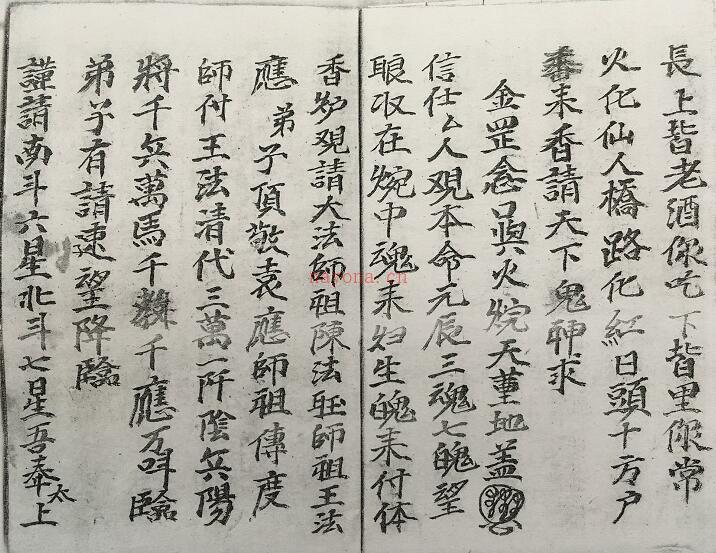 長上皆老酒你吃下皆里你常
火化仙人橋路化紅日頭十方户
畨耒香請天下鬼神求
金罡念口眞火烷天蓳地盖
信仕厶人观本命元辰三魂七魄望
䀶収在烷中魂耒妇生魄耒付体
香炉观請大法師祖陳法䀴師祖王法
應弟子頂敬袁應師祖傳度
師付王法清代三萬一阡陰兵陽
將千兵萬馬千類千應万叫臨
弟子有請速望降臨
謹請南斗六星北斗七星吾奉太上
nayona.cn